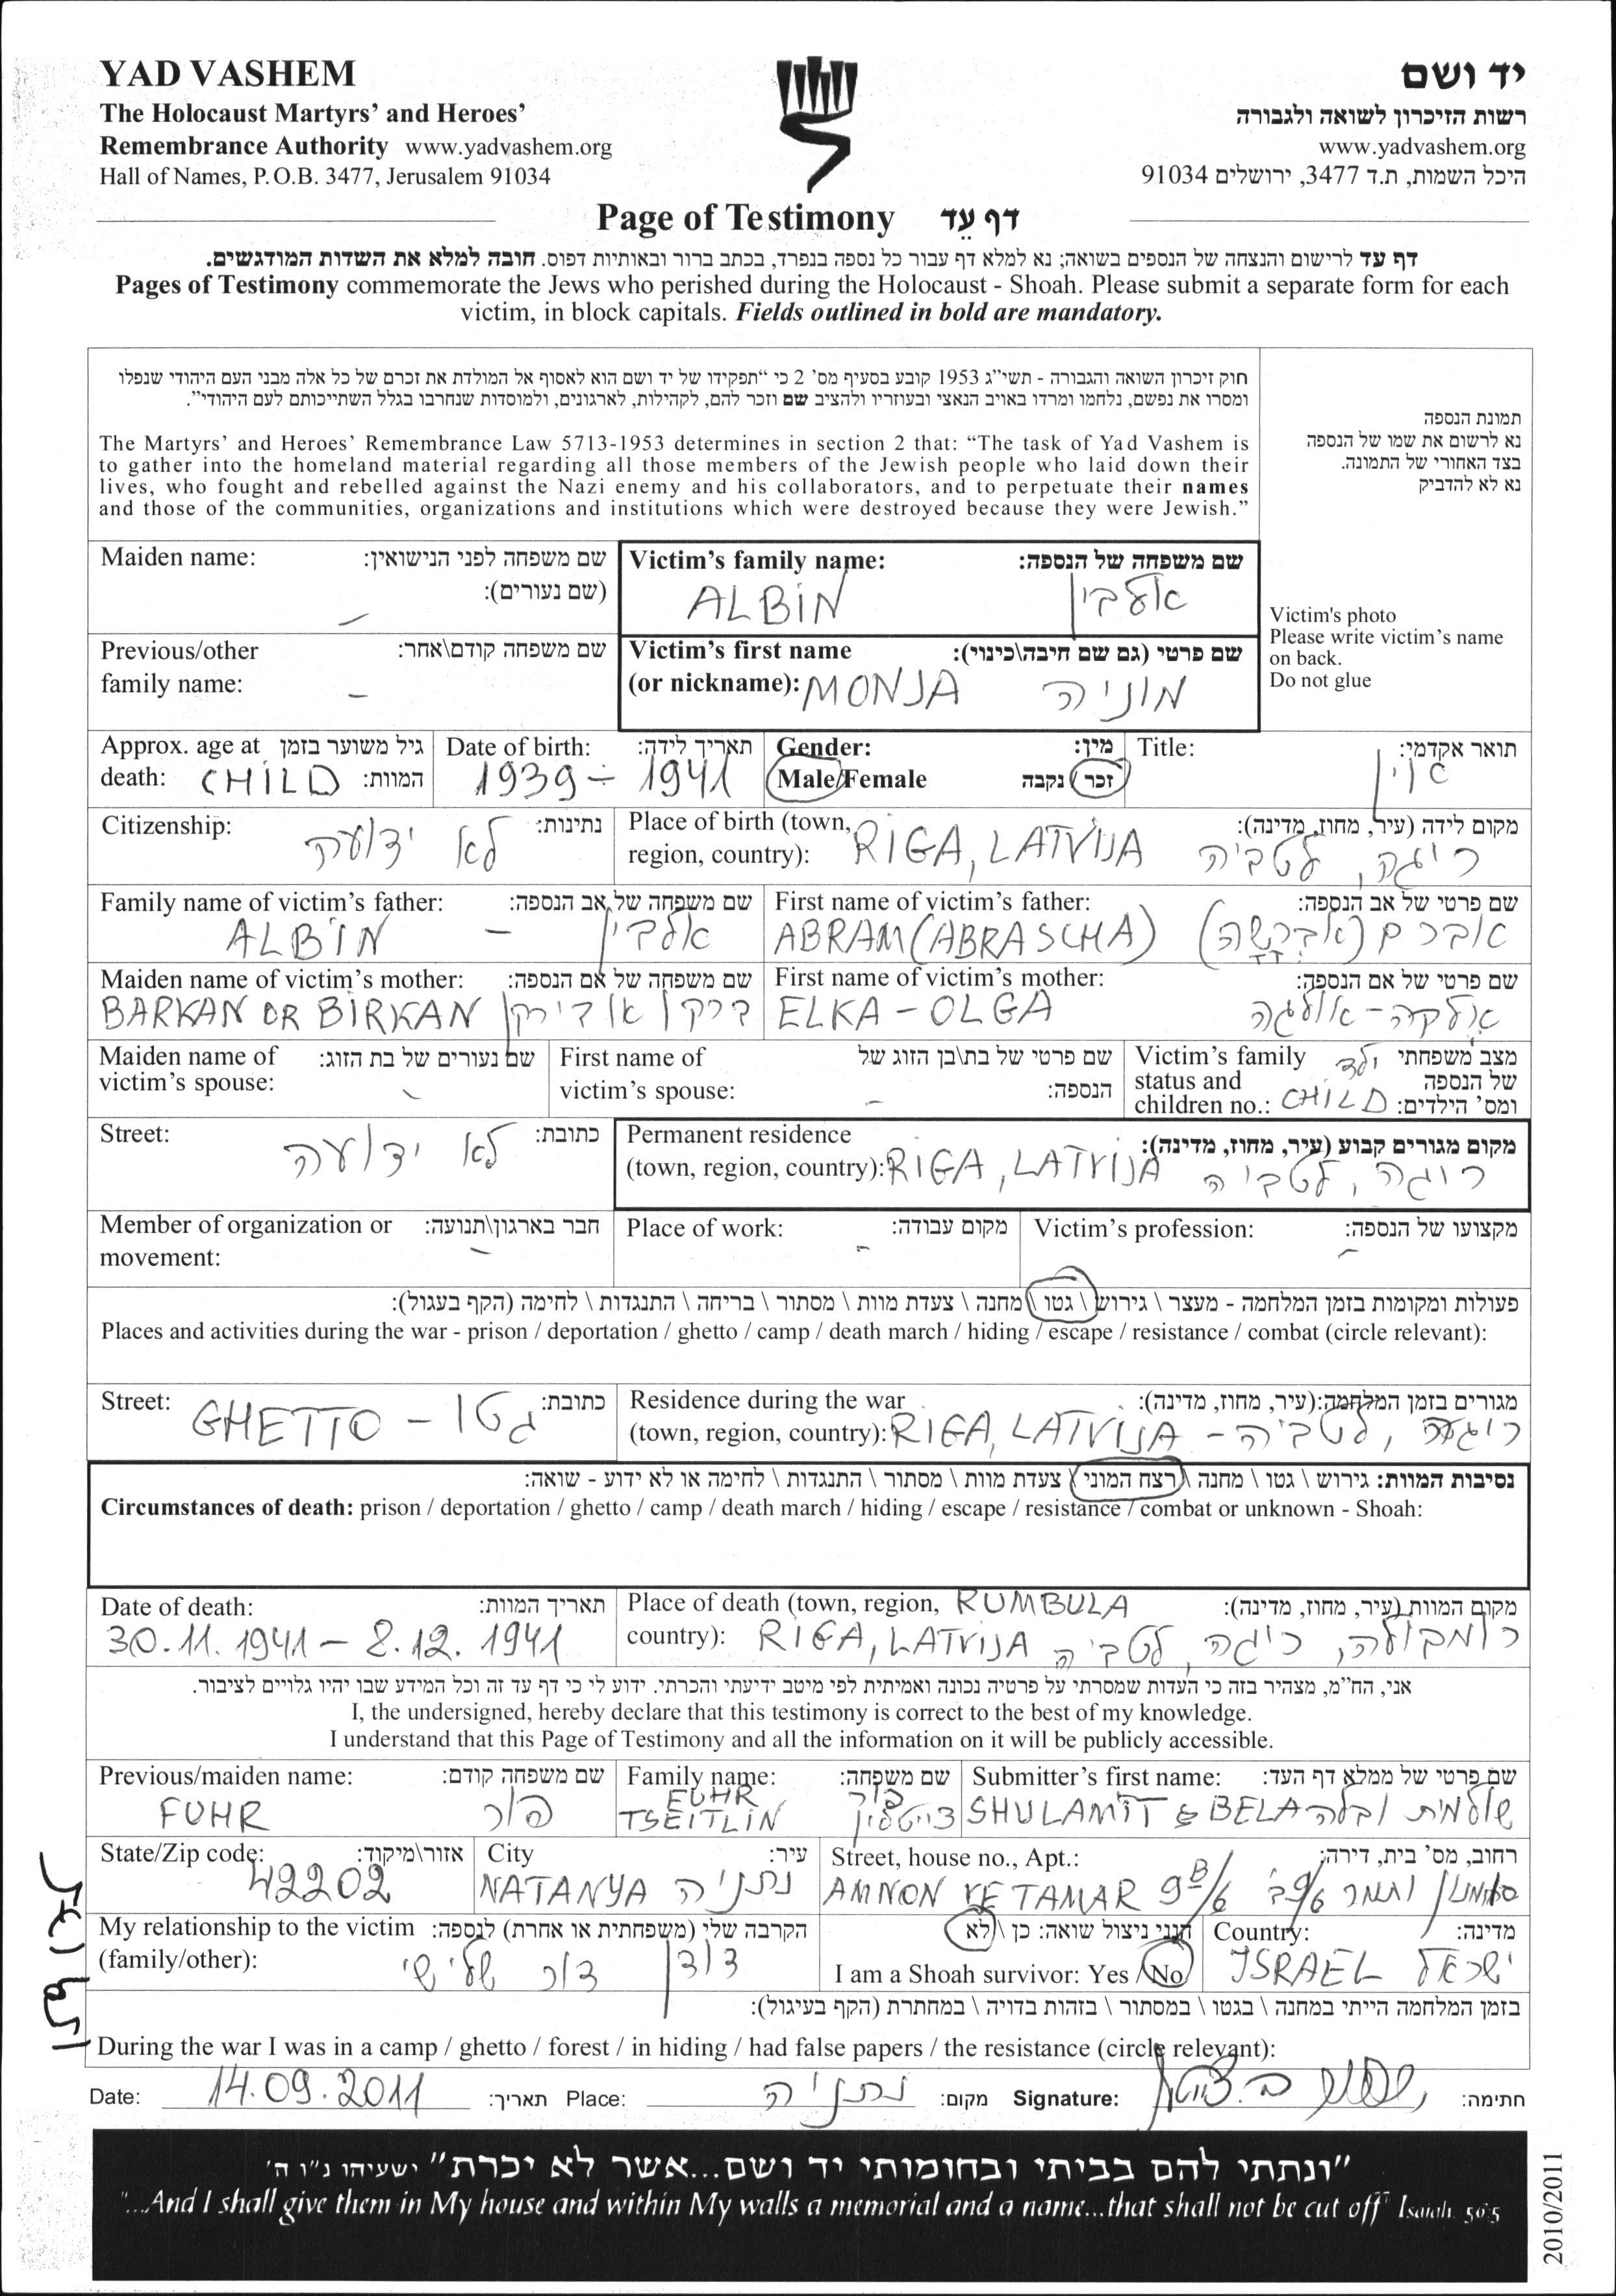 YAD VASHEM
The Holocaust Martyrs' and Heroes'
Remembrance Authority www.yadvashem.org
Hall of Names, P.O.B. 3477, Jerusalem 91034
יד ושם
רשות הזיכרון לשואה ולגבורה
www.yadvashem.org
היכל השמות, ת.ד 3477, ירושלים 91034
Page of Testimony דף עֵד
דף עד לרישום והנצחה של הנספים בשואה; נא למלא דף עבור כל נספה בנפרד, בכתב ברור ובאותיות דפוס. חובה למלא את השדות המודגשים.
Pages of Testimony commemorate the Jews who perished during the Holocaust - Shoah. Please submit a separate form for each
victim, in block capitals. Fields outlined in bold are mandatory.
חוק זיכרון השואה והגבורה - תשי"ג 1953 קובע בסעיף מס' 2 כי "תפקידו של יד ושם הוא לאסוף אל המולדת את זכרם של כל אלה מבני העם היהודי שנפלו
ומסרו את נפשם, נלחמו ומרדו באויב הנאצי ובעוזריו ולהציב שם וזכר להם, לקהילות, לארגונים, ולמוסדות שנחרבו בגלל השתייכותם לעם היהודי".
The Martyrs' and Heroes' Remembrance Law 5713-1953 determines in section 2 that: "The task of Yad Vashem is
to gather into the homeland material regarding all those members of the Jewish people who laid down their
lives, who fought and rebelled against the Nazi enemy and his collaborators, and to perpetuate their names
and those of the communities, organizations and institutions which were destroyed because they were Jewish."
תמונת הנספה
נא לרשום את שמו של הנספה
בצד האחורי של התמונה.
נא לא להדביק
Victim's photo
Please write victim's name
on back.
Do not glue
Maiden name: שם משפחה לפני הנישואין:
(שם נעורים):
–
Victim's family name: שם משפחה של הנספה:
ALBIN אלבין
Previous/other שם משפחה קודם\אחר:
family name: –
Victim's first name שם פרטי (גם שם חיבה\כינוי):
(or nickname): MONJA מוניה
Approx. age at גיל משוער בזמן
death: CHILD המוות:
Date of birth: תאריך לידה:
1939 ÷ 1941
Gender: מין:
Male/Female זכר / נקבה
Title: תואר אקדמי:
אין
Citizenship: נתינות:
לא ידועה
Place of birth (town, מקום לידה (עיר, מחוז, מדינה):
region, country): RIGA, LATVIJA ריגה, לטביה
Family name of victim's father: שם משפחה של אב הנספה:
ALBIN – אלבין
First name of victim's father: שם פרטי של אב הנספה:
ABRAM (ABRASCHA) אברם (אברשה)
Maiden name of victim's mother: שם משפחה של אם הנספה:
BARKAN OR BIRKAN ברקן או בירקן
First name of victim's mother: שם פרטי של אם הנספה:
ELKA – OLGA אלקה - אולגה
Maiden name of שם נעורים של בת הזוג:
victim's spouse: –
First name of שם פרטי של בת\בן הזוג של
victim's spouse: – הנספה:
Victim's family ילד מצב משפחתי
status and של הנספה
children no.: CHILD ומס' הילדים:
Street: כתובת:
לא ידועה
Permanent residence מקום מגורים קבוע (עיר, מחוז, מדינה):
(town, region, country): RIGA, LATVIJA ריגה, לטביה
Member of organization or חבר בארגון\תנועה:
movement: –
Place of work: מקום עבודה:
–
Victim's profession: מקצועו של הנספה:
–
פעולות ומקומות בזמן המלחמה - מעצר \ גירוש \ גטו \ מחנה \ צעדת מוות \ מסתור \ בריחה \ התנגדות \ לחימה (הקף בעגול):
Places and activities during the war - prison / deportation / ghetto / camp / death march / hiding / escape / resistance / combat (circle relevant):
Street: כתובת:
GHETTO – גטו
Residence during the war מגורים בזמן המלחמה:(עיר, מחוז, מדינה):
(town, region, country): RIGA, LATVIJA - ריגה, לטביה
נסיבות המוות: גירוש \ גטו \ מחנה \ רצח המוני \ צעדת מוות \ מסתור \ התנגדות \ לחימה או לא ידוע - שואה:
Circumstances of death: prison / deportation / ghetto / camp / death march / hiding / escape / resistance / combat or unknown - Shoah:
Date of death: תאריך המוות:
30.11.1941 – 8.12.1941
Place of death (town, region, RUMBULA מקום המוות (עיר, מחוז, מדינה):
country): RIGA, LATVIJA רומבולה, ריגה, לטביה
אני, הח"מ, מצהיר בזה כי העדות שמסרתי על פרטיה נכונה ואמיתית לפי מיטב ידיעתי והכרתי. ידוע לי כי דף עד זה וכל המידע שבו יהיו גלויים לציבור.
I, the undersigned, hereby declare that this testimony is correct to the best of my knowledge.
I understand that this Page of Testimony and all the information on it will be publicly accessible.
Previous/maiden name: שם משפחה קודם:
FUHR פור
Family name: שם משפחה:
FUHR פור
TSEITLIN צייטלין
Submitter's first name: שם פרטי של ממלא דף העד:
SHULAMIT & BELA שולמית ובלה
State/Zip code: אזור\מיקוד:
42202
City עיר:
NATANYA נתניה
Street, house no., Apt.: רחוב, מס' בית, דירה:
AMNON VE TAMAR 9B/6 אמנון ותמר 9ב/6
My relationship to the victim הקרבה שלי (משפחתית או אחרת) לנספה:
(family/other): דודן דור שלישי
הנני ניצול שואה: כן \ לא
I am a Shoah survivor: Yes / No
Country: מדינה:
ISRAEL ישראל
בזמן המלחמה הייתי במחנה \ בגטו \ במסתור \ בזהות בדויה \ במחתרת (הקף בעיגול):
During the war I was in a camp / ghetto / forest / in hiding / had false papers / the resistance (circle relevant):
Date: 14.09.2011 תאריך: Place: נתניה מקום: Signature: חתימה:
"ונתתי להם בביתי ובחומותי יד ושם...אשר לא יכרת" ישעיהו נ"ו ה'
"...And I shall give them in My house and within My walls a memorial and a name...that shall not be cut off" Isaiah 56:5
2010/2011